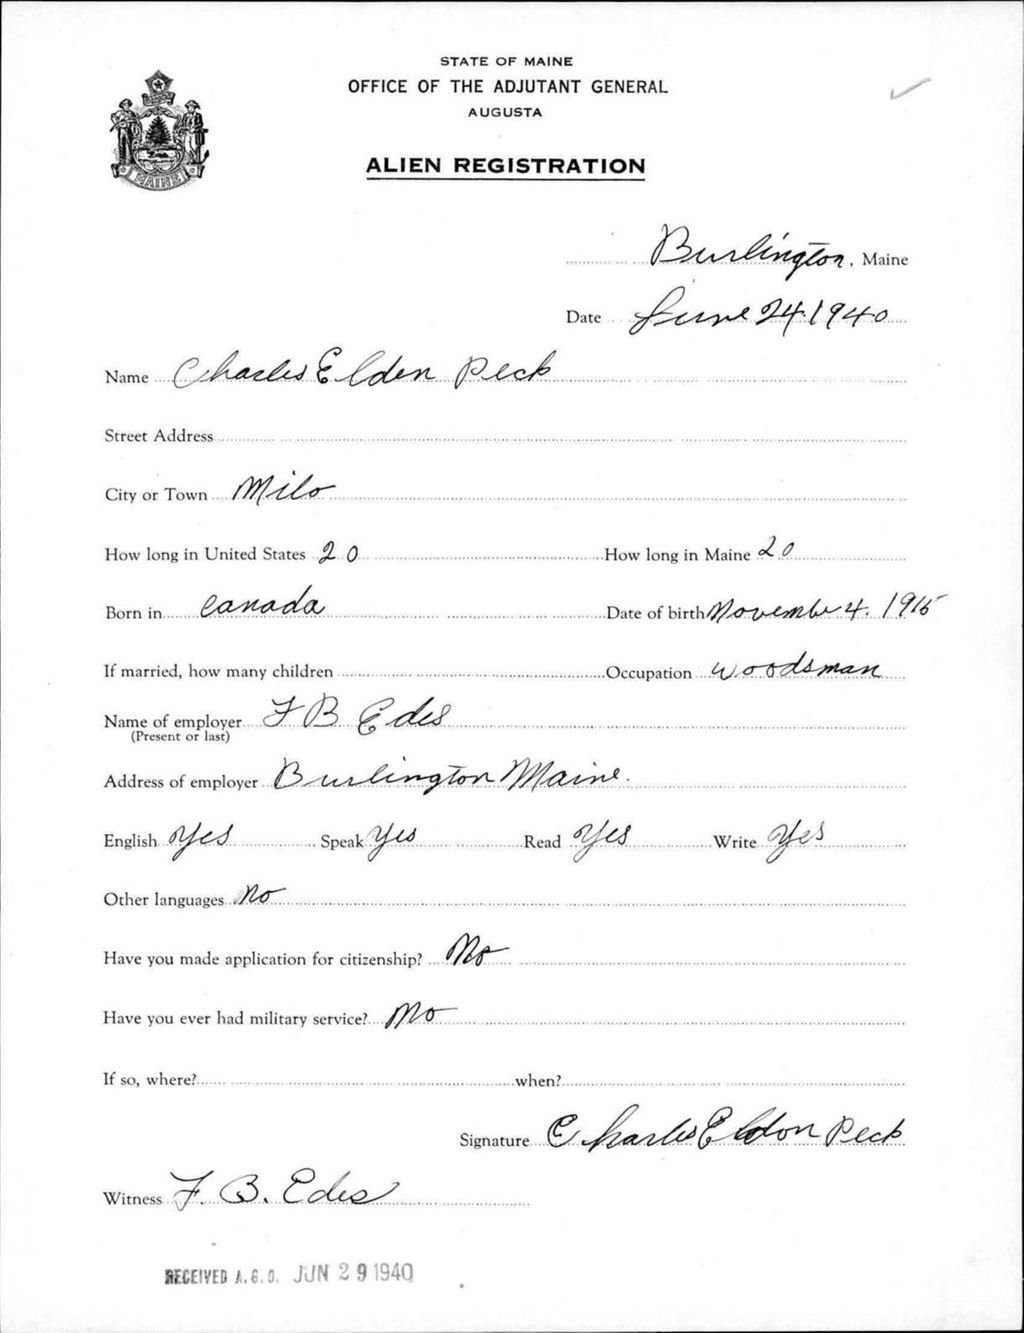 STATE OF MAINE
OFFICE OF THE ADJUTANT GENERAL
AUGUSTA
ALIEN REGISTRATION
MAINE
Burlington, Maine
Date June 24, 1940
Name Charles Elden Peck
Street Address
City or Town Milo
How long in United States 20 How long in Maine 20
Born in Canada Date of birth November 4. 1915
If married, how many children Occupation Woodsman
Name of employer F B Edes
(Present or last)
Address of employer Burlington Maine.
English Yes Speak Yes Read Yes Write Yes
Other languages No
Have you made application for citizenship? No
Have you ever had military service? No
If so, where? when?
Signature Charles Eldon Peck
Witness F. B. Edes
RECEIVED A.G.O. JUN 29 1940